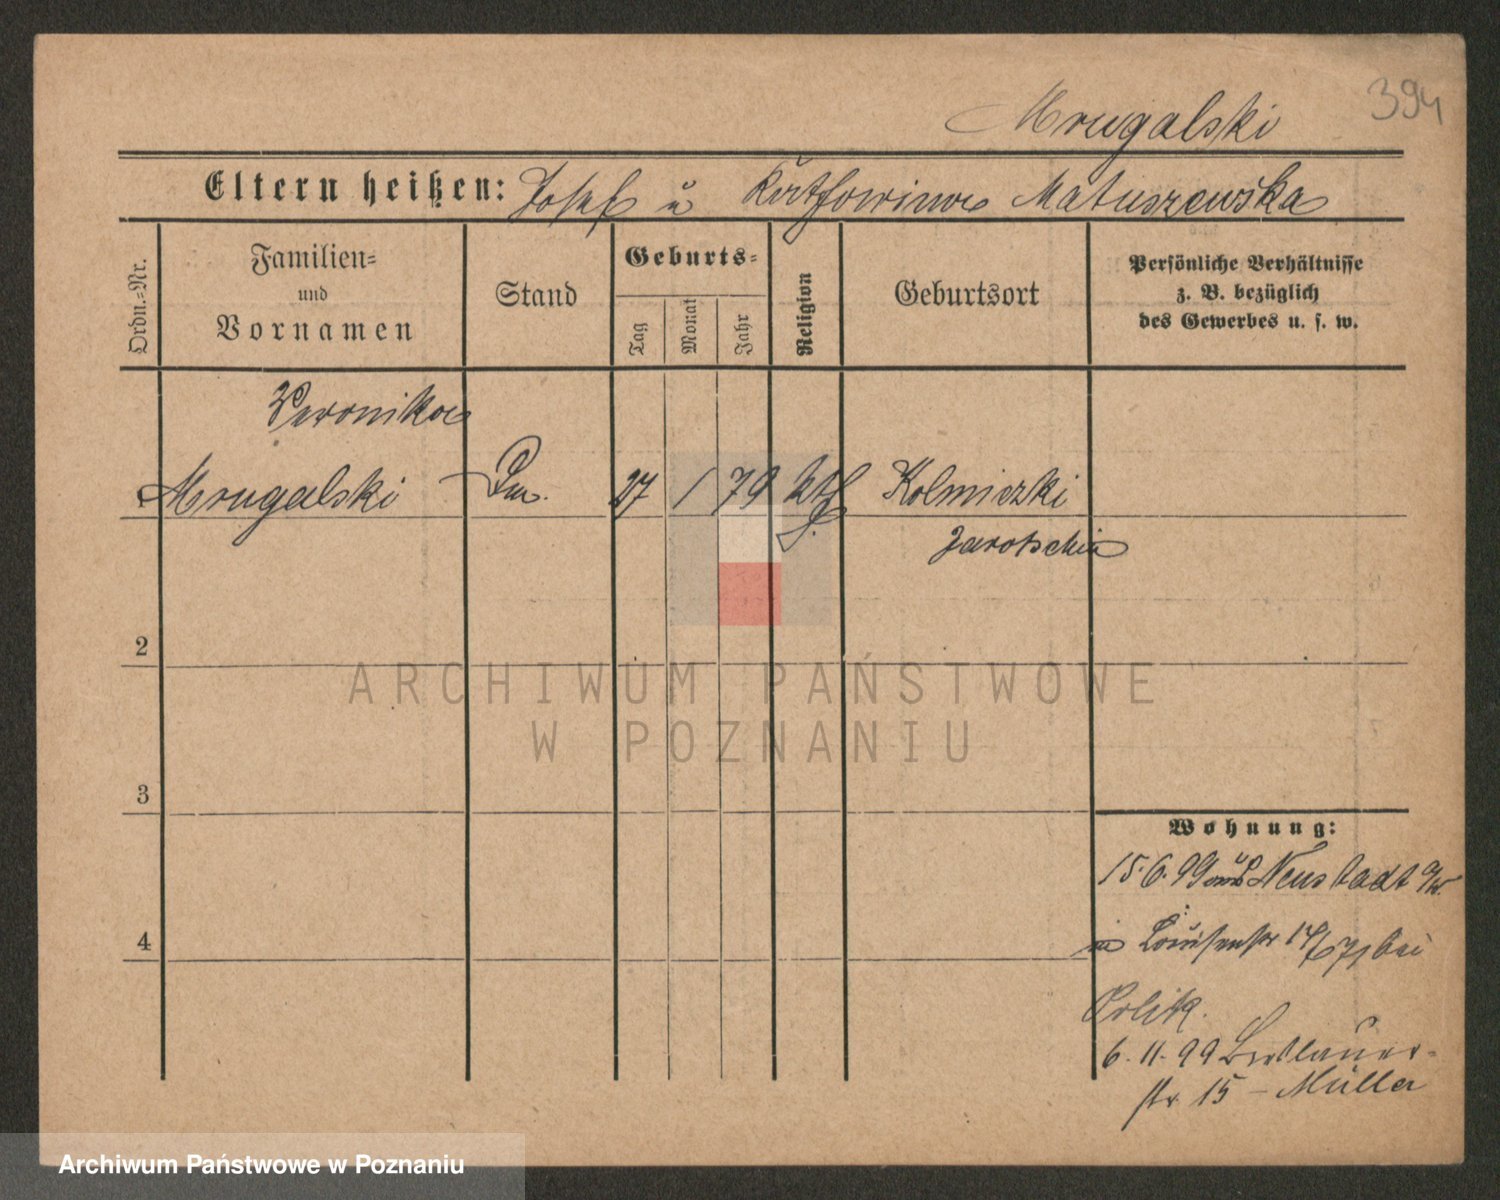 394
Mrugalski
Eltern heißen: Josef u Katharina Matuszewska
Ordn.=Nr.
Familien=
und
Vornamen
Stand
Geburts=
Tag
Monat
Jahr
Religion
Geburtsort
Persönliche Verhältnisse
z. B. bezüglich
des Gewerbes u. s. w.
Veronika
1 Mrugalski 27 1 79 kth Kolniczki
Jarotschin
2
3
4
Wohnung:
15.6.99 aus Neustadt a/W.
in Louisenstr bei
6.11.99 Breslauer-
str 15 - Müller
ARCHIWUM PAŃSTWOWE
W POZNANIU
Archiwum Państwowe w Poznaniu